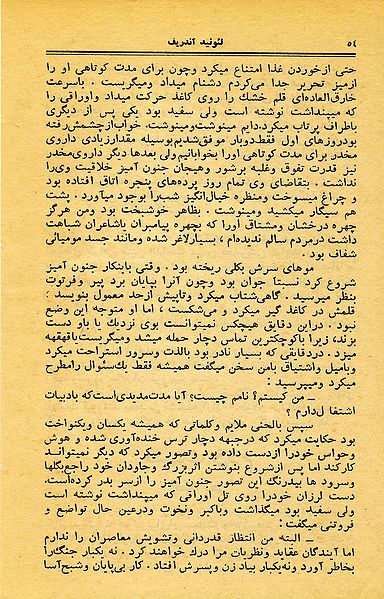 ۵۴
لئونید آندریف
حتی ازخوردن غذا امتناع میکرد وچون برای مدت کوتاهی او را
ازمیز تحریر جدا می‌کردم دشنام میداد ومیگریست . باسرعت
خارق‌العاده‌ای قلم خشک را روی کاغذ حرکت میداد واوراقی را
که میپنداشت نوشته است ولی سفید بود یکی پس از دیگری
باطراف پرتاب میکرد.دایم مینوشت‌ومینوشت. خواب‌ازچشمش‌رفته
بودروزهای اول فقط‌دوبار موفق‌شدیم‌بوسیله مقدارزیادی داروی
مخدر برای مدت کوتاهی اورا بخوابانیم‌ولی بعدها دیگر داروی‌مخدر
نیز قدرت تفوق وغلبه برشور وهیجان جنون آمیز خلاقیت وی‌را
نداشت . بتقاضای وی تمام روز پرده‌های پنجره اتاق افتاده بود
و چراغ میسوخت ومنظره خیال‌انگیز شب‌را بوجود میآورد . پشت
هم سیگار میکشید ومینوشت . بظاهر خوشبخت بود ومن هرگز
چهره درخشان ومشتاق اورا که بچهره پیامبران یاشاعران شباهت
داشت درمردم سالم ندیده‌ام ، بسیارلاغر شده ومانند جسد مومیائی
شفاف بود .
موهای سرش بکلی ریخته بود . وقتی باینکار جنون آمیز
شروع کرد نسبتا جوان بود وچون آنرا بپایان برد پیر وفرتوت
بنظر میرسید . گاهی‌شتاب میکرد وتاپیش ازحد معمول بنویسد ؛
قلمش در کاغذ گیر میکرد و می‌شکست ، اما او متوجه این وضع
نبود . دراین دقایق هیچکس نمیتوانست بوی نزدیک یا باو دست
بزند، زیرا باکوچکترین تماس دچار حمله میشد ومیگریست‌یاقهقهه
میزد . دردقایقی که بسیار نادر بود بالذت وسرور استراحت میکرد
وبامیل واشتیاق بامن سخن میگفت همیشه فقط یک‌سئوال رامطرح
میکرد ومیپرسید :
ــ من کیستم؟ نامم چیست؟ آیا مدت‌مدیدی‌است‌که بادبیات
اشتغال‌دارم ؟
سپس بالحنی ملایم وکلماتی که همیشه یکسان ویکنواخت
بود حکایت میکرد که درجبهه دچار ترس خنده‌آوری شده و هوش
وحواس خودرا ازدست داده بود وتصور میکرد که دیگر نمیتوانـد
کارکند اما پس ازشروع بنوشتن اثربزرگ وجاودان خود راجع‌بگلها
وسرود ها بیدرنگ این تصور جنون آمیز را ازسر بدر کرده‌است.
دست لرزان خودرا روی تل اوراقی که میپنداشت نوشته است
ولی سفید بود میگذاشت وباکبر ونخوت ودرعین حال تواضع و
فروتنی میگفت :
ــ البته من انتظار قدردانی وتشویش معاصران را ندارم
اما آیندگان عقاید ونظریات مرا درک خواهند کرد . نه یکبار جنگ‌را
بخاطر آورد ونه‌یکبار بیاد زن وپسرش افتاد . کار بی‌پایان وشبح‌آسا